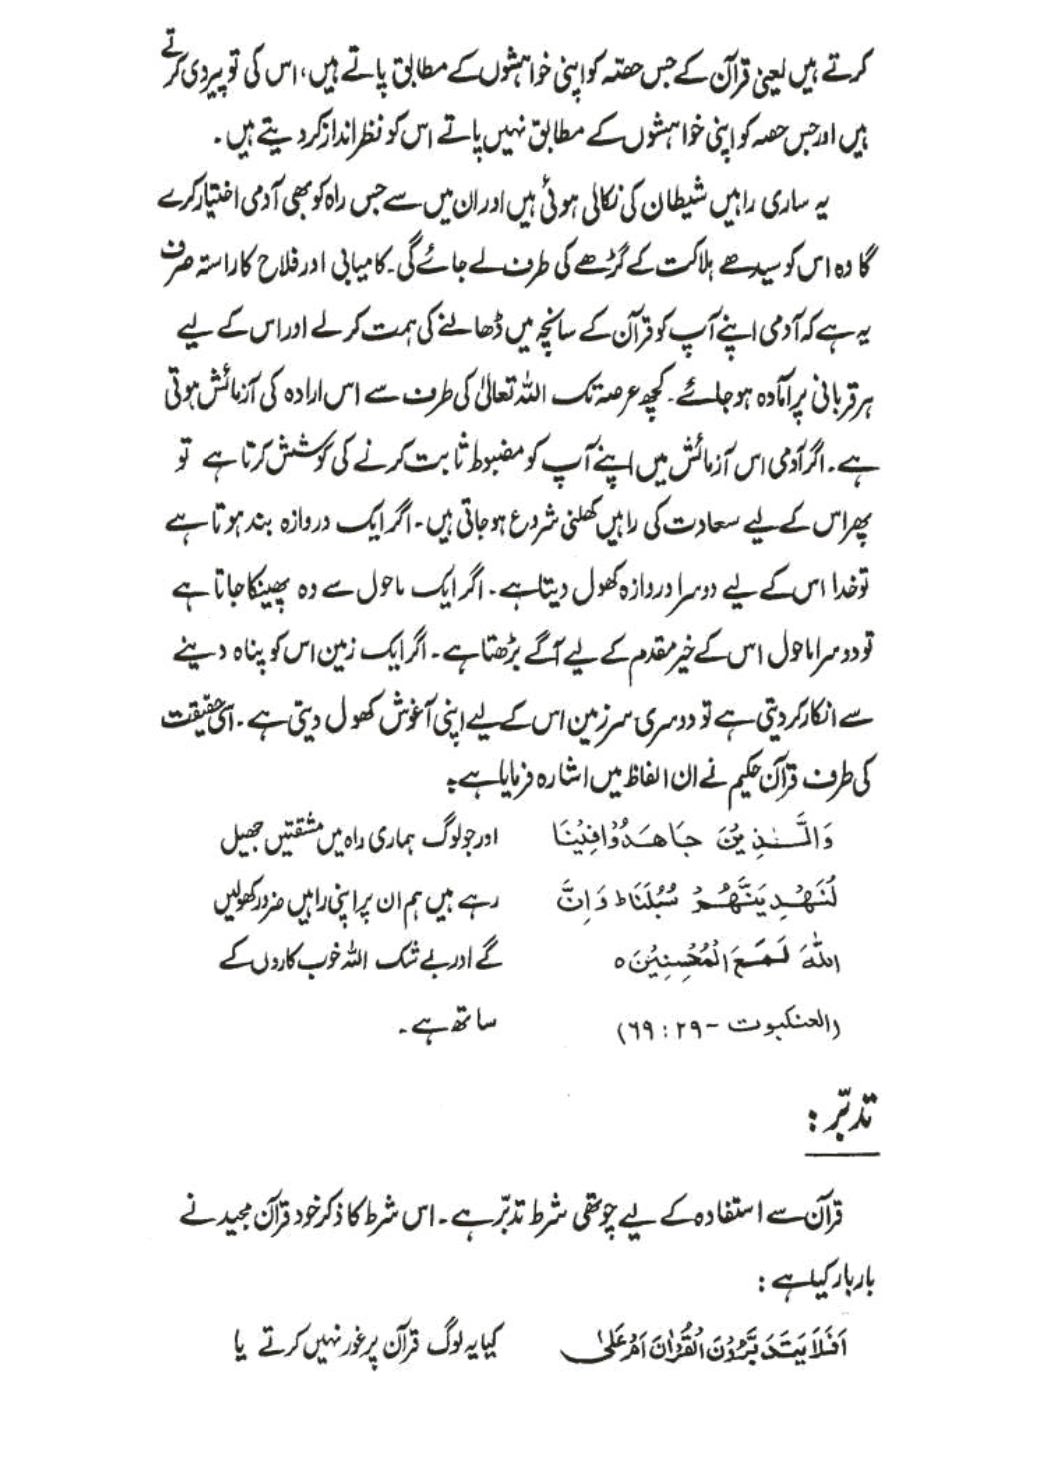 کرتے ہیں یعنی قرآن کے جس حصّہ کو اپنی خواہشوں کے مطابق پاتے ہیں، اس کی تو پیروی کرتے
ہیں اور جس حصہ کو اپنی خواہشوں کے مطابق نہیں پاتے اس کو نظر انداز کر دیتے ہیں۔
یہ ساری راہیں شیطان کی نکالی ہوئی ہیں اور ان میں سے جس راہ کو بھی آدمی اختیار کرے
گا وہ اس کو سیدھے ہلاکت کے گڑھے کی طرف لے جائے گی۔ کامیابی اور فلاح کا راستہ صرف
یہ ہے کہ آدمی اپنے آپ کو قرآن کے سانچہ میں ڈھالنے کی ہمت کرلے اور اس کے لیے
ہر قربانی پر آمادہ ہو جائے۔ کچھ عرصہ تک اللہ تعالیٰ کی طرف سے اس ارادہ کی آزمائش ہوتی
ہے۔ اگر آدمی اس آزمائش میں اپنے آپ کو مضبوط ثابت کرنے کی کوشش کرتا ہے تو
پھر اس کے لیے سعادت کی راہیں کھلنی شروع ہو جاتی ہیں۔ اگر ایک دروازہ بند ہوتا ہے
تو خدا اس کے لیے دوسرا دروازہ کھول دیتا ہے۔ اگر ایک ماحول سے وہ پھینکا جاتا ہے
تو دوسرا ماحول اس کے خیر مقدم کے لیے آگے بڑھتا ہے۔ اگر ایک زمین اس کو پناہ دینے
سے انکار کر دیتی ہے تو دوسری سرزمین اس کے لیے اپنی آغوش کھول دیتی ہے۔ اسی حقیقت
کی طرف قرآن حکیم نے ان الفاظ میں اشارہ فرمایا ہے:
وَالَّذِيْنَ جَاهَدُوْا فِيْنَا اور جو لوگ ہماری راہ میں مشقتیں جھیل
لَنَهْدِيَنَّهُمْ سُبُلَنَا ط وَاِنَّ رہے ہیں ہم ان پر اپنی راہیں ضرور کھولیں
اللّٰهَ لَمَعَ الْمُحْسِنِيْنَ ○ گے اور بے شک اللہ خوب کاروں کے
(العنکبوت - ۲۹ : ۶۹) ساتھ ہے۔
تدبّر :
قرآن سے استفادہ کے لیے چوتھی شرط تدبّر ہے۔ اس شرط کا ذکر خود قرآن مجید نے
بار بار کیا ہے :
اَفَلَا يَتَدَبَّرُوْنَ الْقُرْاٰنَ اَمْ عَلٰى کیا یہ لوگ قرآن پر غور نہیں کرتے یا